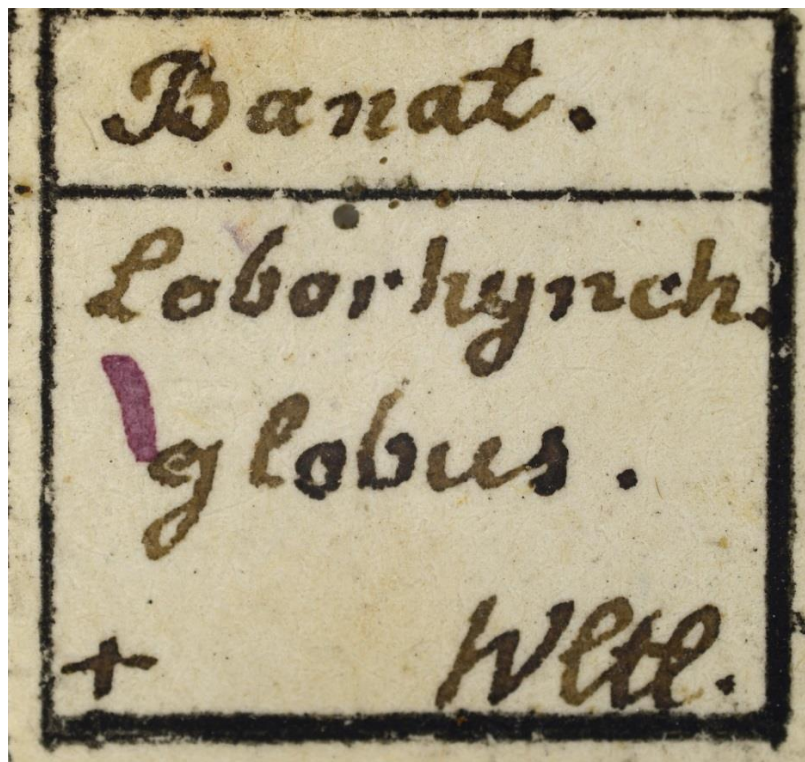 Banat.
Loborhynch.
globus.
+ Wltl.